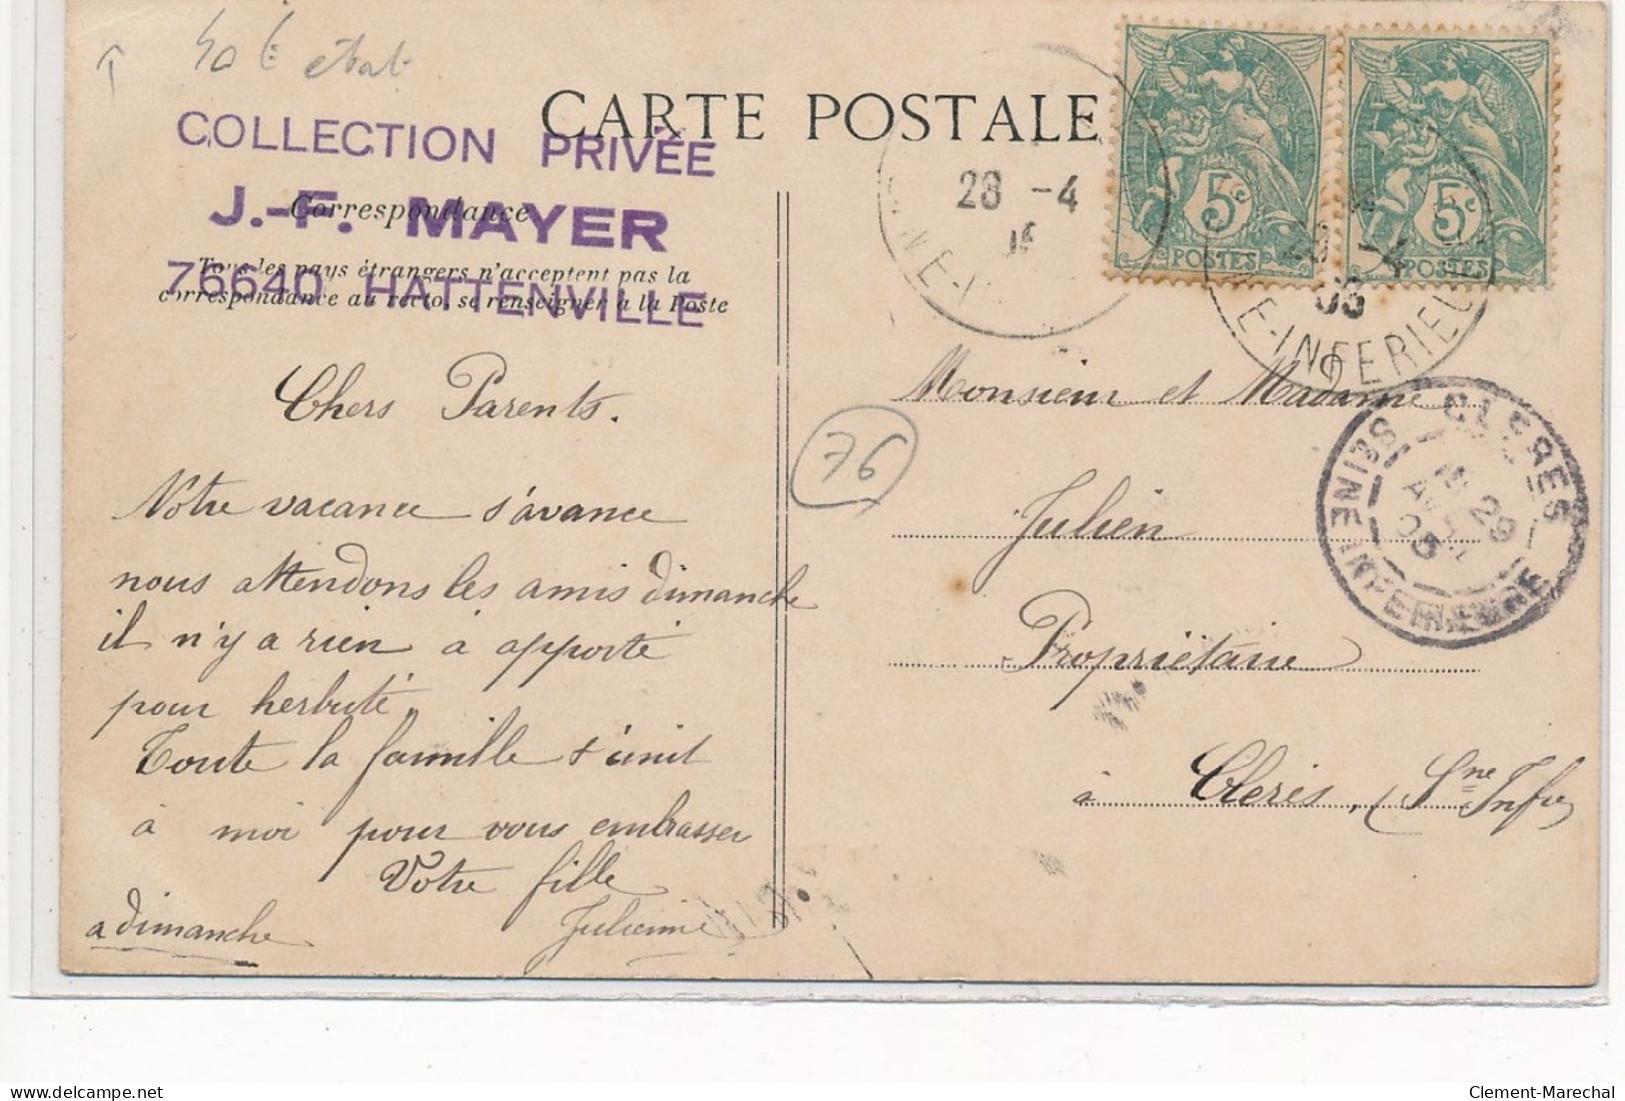 CARTE POSTALE
COLLECTION PRIVÉE
J.-F. MAYER
76640 HATTENVILLE
Correspondance
Tous les pays étrangers n'acceptent pas la
correspondance au recto, se renseigner à la Poste
Chers Parents.
Notre vacance s'avance
nous attendons les amis dimanche
il n'y a rien à apporté
pour herbuté,
Toute la famille s'unit
à moi pour vous embrasser
Votre fille
a dimanche
Julienne
28 -4
5c
POSTES
5c
POSTES
-4
05
E-INFERIEU
Monsieur et Madame
76
Julien
Propriétaire
à Clerès. (Sne Infre
CLERES
29
AVRIL
05
SEINE INFERIEURE
Clement-Marechal
delcampe.net